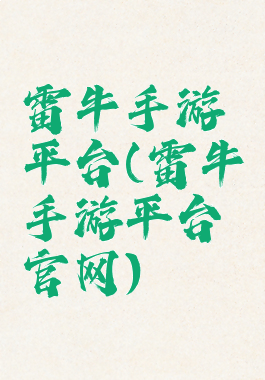 雷牛手游
平台(雷牛
手游平台
官网)